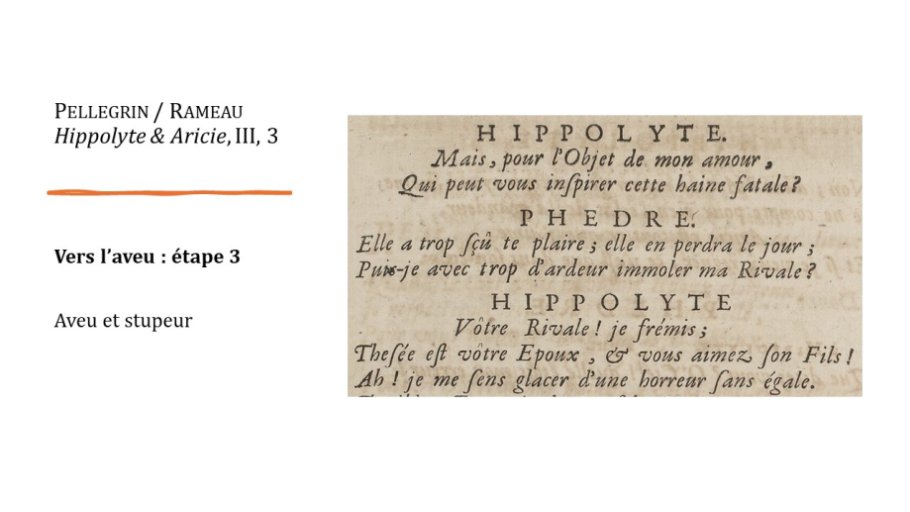 PELLEGRIN / RAMEAU
Hippolyte & Aricie, III, 3
Vers l’aveu : étape 3
Aveu et stupeur
HIPPOLYTE.
Mais, pour l'Objet de mon amour,
Qui peut vous inſpirer cette haine fatale?
PHEDRE.
Elle a trop ſçû te plaire; elle en perdra le jour;
Puis-je avec trop d'ardeur immoler ma Rivale?
HIPPOLYTE
Vôtre Rivale! je frémis;
Theſée eſt vôtre Epoux, & vous aimez ſon Fils!
Ah! je me ſens glacer d'une horreur ſans égale.